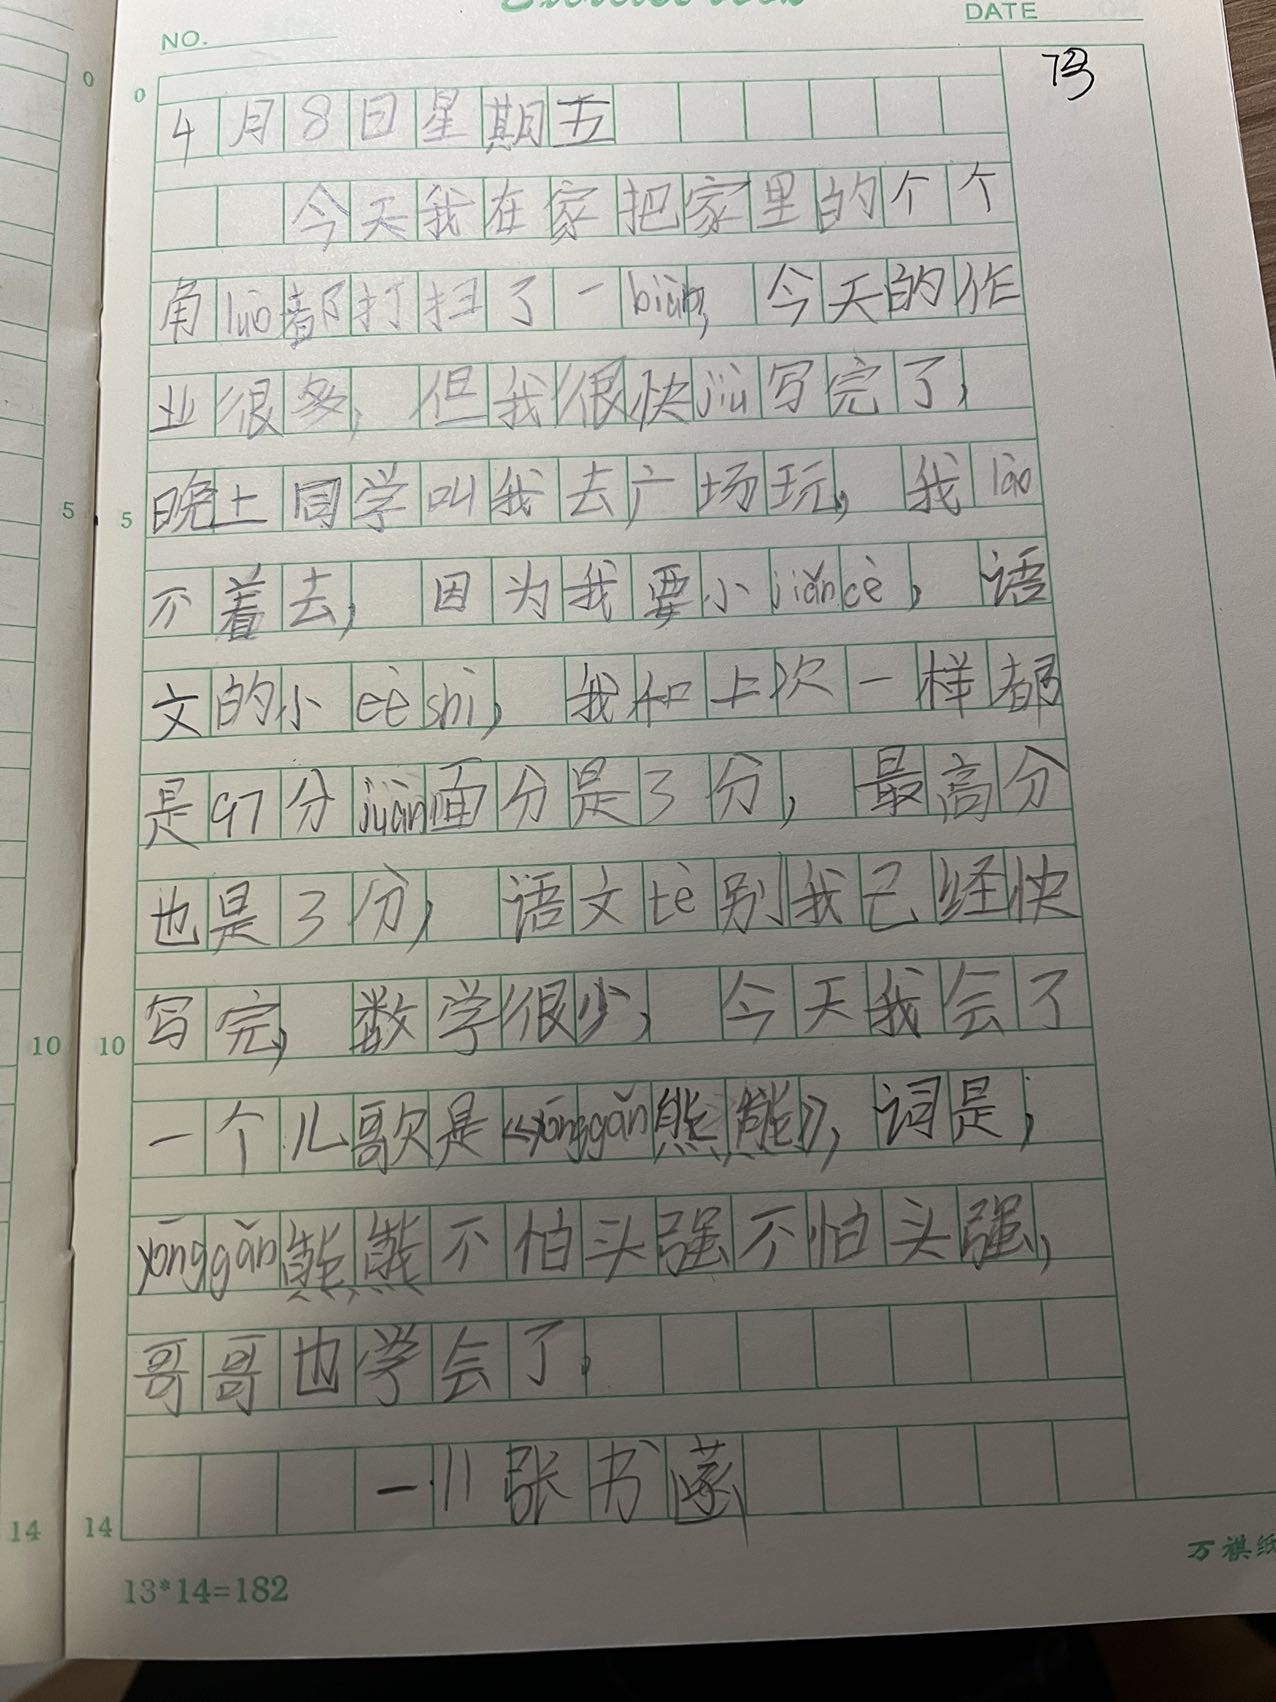 NO.
DATE
4月8日星期五
今天我在家把家里的个个
角luò都打扫了一biàn,今天的作
业很多,但我很快jiù写完了,
晚上同学叫我去广场玩,我lǎo
不着去,因为我要小jiǎncè,语
文的小cèshì,我和上次一样都
是97分juàn面分是3分,最高分
也是3分,语文tè别我已经快
写完,数学很少,今天我会了
一个儿歌是《yǒnggǎn熊熊》,词是;
yǒnggǎn熊熊不怕头强不怕头强,
哥哥也学会了.
一11张书
0
0
5
5
10
10
14
14
13*14=182
万祺纸